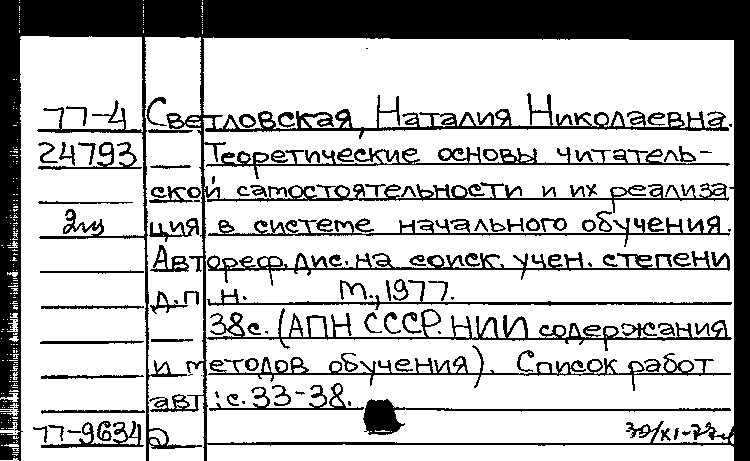 77-4 Светловская, Наталия Николаевна.
24793 Теоретические основы читатель-
ской самостоятельности и их реализа-
ция в системе начального обучения.
Автореф. дис. на соиск. учен. степени
д.п.н. М., 1977.
38с. (АПН СССР. НИИ содержания
и методов обучения). Список работ
авт.: с. 33-38.
77-9634